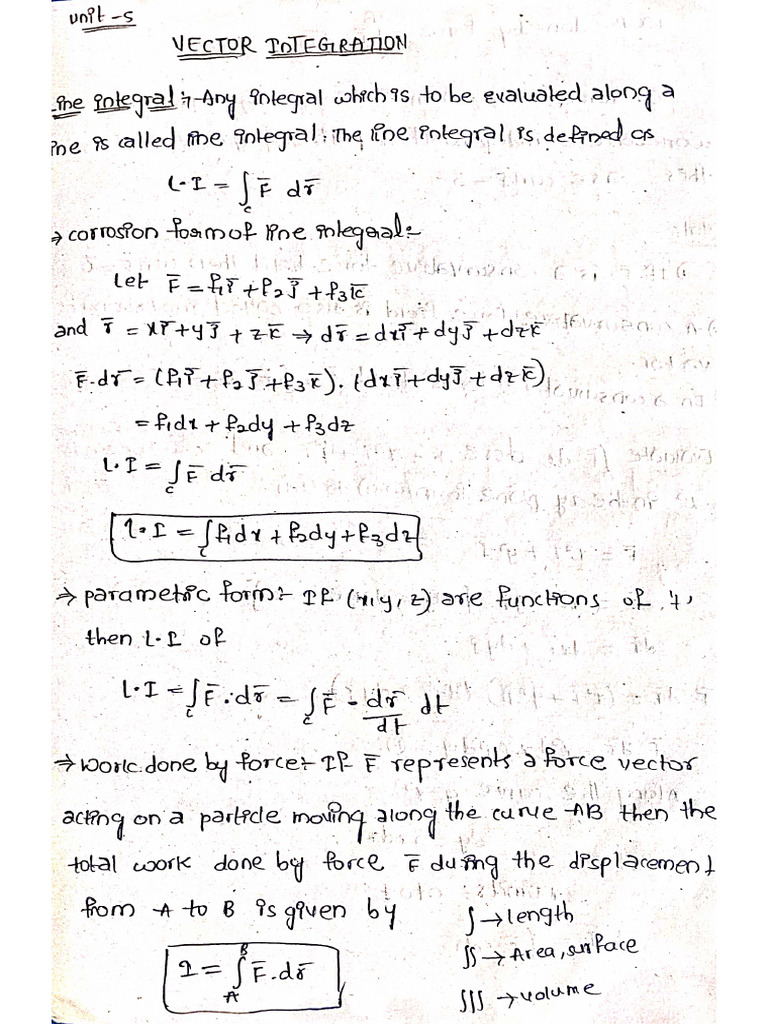 Unit-5
VECTOR INTEGRATION
ine integral :- Any integral which is to be evaluated along a
ine is called line integral. The line integral is defined as
L.I = ∫_c F̄ dr̄
→ corrosion form of line integral:-
Let F̄ = f₁ī + f₂j̄ + f₃k̄
and r̄ = xī + yj̄ + zk̄ → dr̄ = dxī + dyj̄ + dzk̄
F̄.dr̄ = (f₁ī + f₂j̄ + f₃k̄).(dxī + dyj̄ + dzk̄)
= f₁dx + f₂dy + f₃dz
L.I = ∫_c F̄ dr̄
L.I = ∫_c f₁dx + f₂dy + f₃dz
→ parametric form:- If (x, y, z) are functions of 't',
then L.I of
L.I = ∫_c F̄.dr̄ = ∫_c F̄ - dr̄/dt dt
→ work done by force:- If F̄ represents a force vector
acting on a particle moving along the curve AB then the
total work done by force F̄ during the displacement
from A to B is given by
∫ → length
∫∫ → Area, surface
I = ∫_A^B F̄.dr̄
∫∫∫ → volume